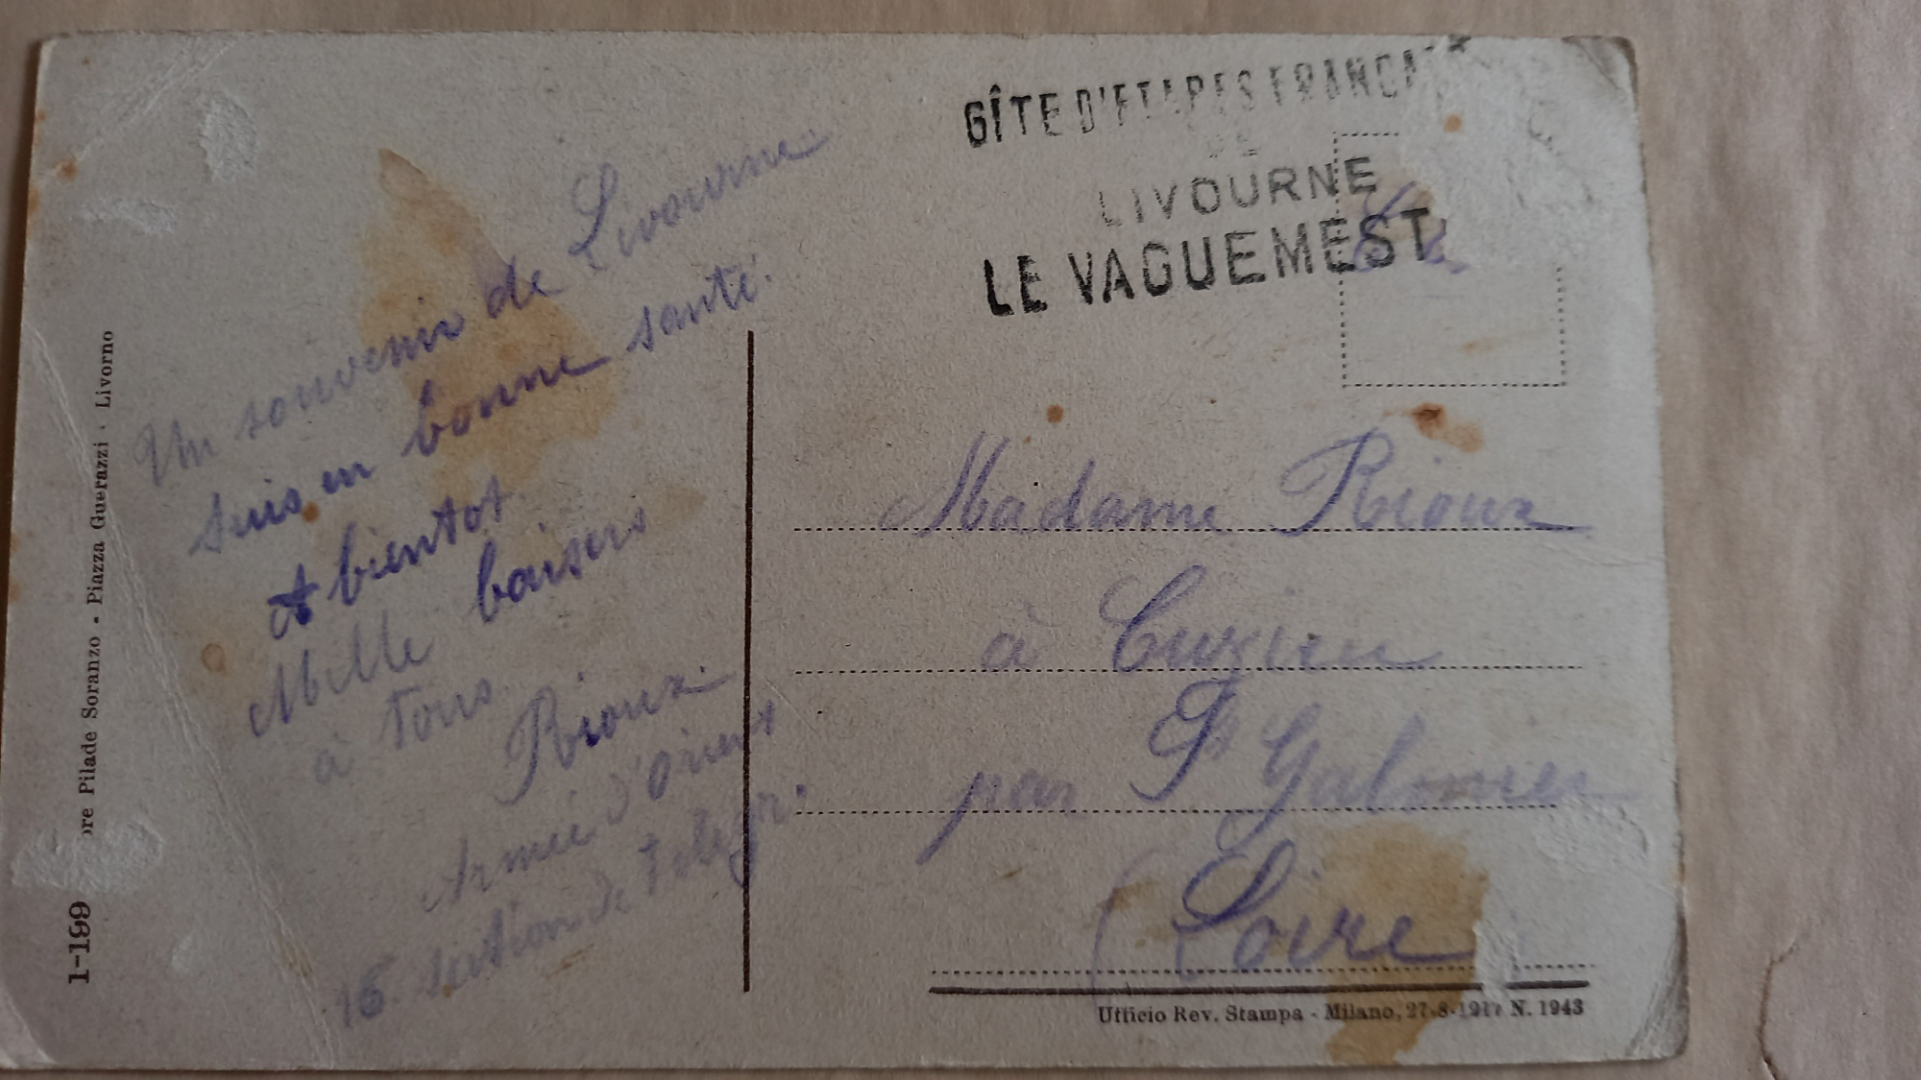 GÎTE D'ETAPES FRANÇA
DE
LIVOURNE
LE VAGUEMEST
Un souvenir de Livourne
suis en bonne santé.
A bientot
Mille baisers
à tous
Rioux.
Armée d'Orient
16. section de Telegr.
Madame Rioux
à Cuzieu
par St Galmier
(Loire
1-199
ore Pilade Soranzo - Piazza Guerazzi - Livorno
Ufficio Rev. Stampa - Milano, 27-8-1917 N. 1943